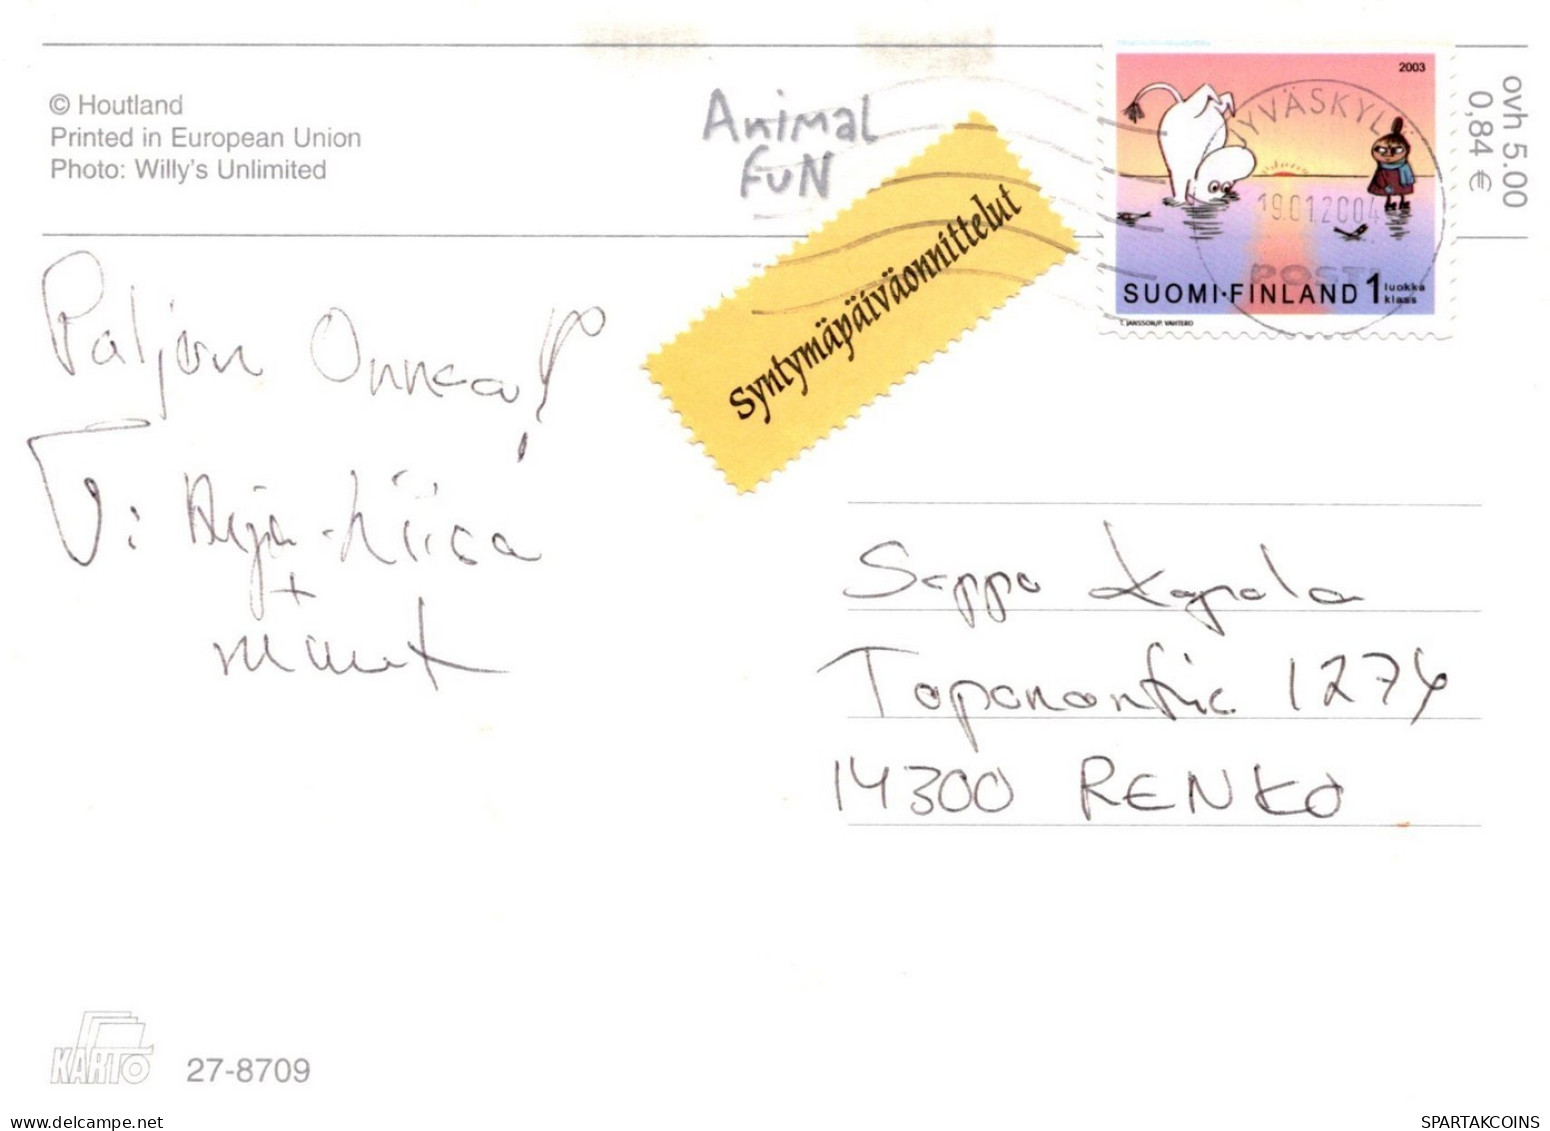 © Houtland
Printed in European Union
Photo: Willy's Unlimited
Animal
FUN
Syntymäpäiväonnittelut
2003
JYVÄSKYLÄ
19.01.2004
POSTI
SUOMI·FINLAND 1 luokka
klass
T. JANSSON/P. VAHTERO
ovh 5.00
0,84 €
Paljon Onnea!
T: Arja-Liisa
+
muut
Seppo Kapala
14300 RENKO
KARTO
27-8709
www.delcampe.net
SPARTAKCOINS